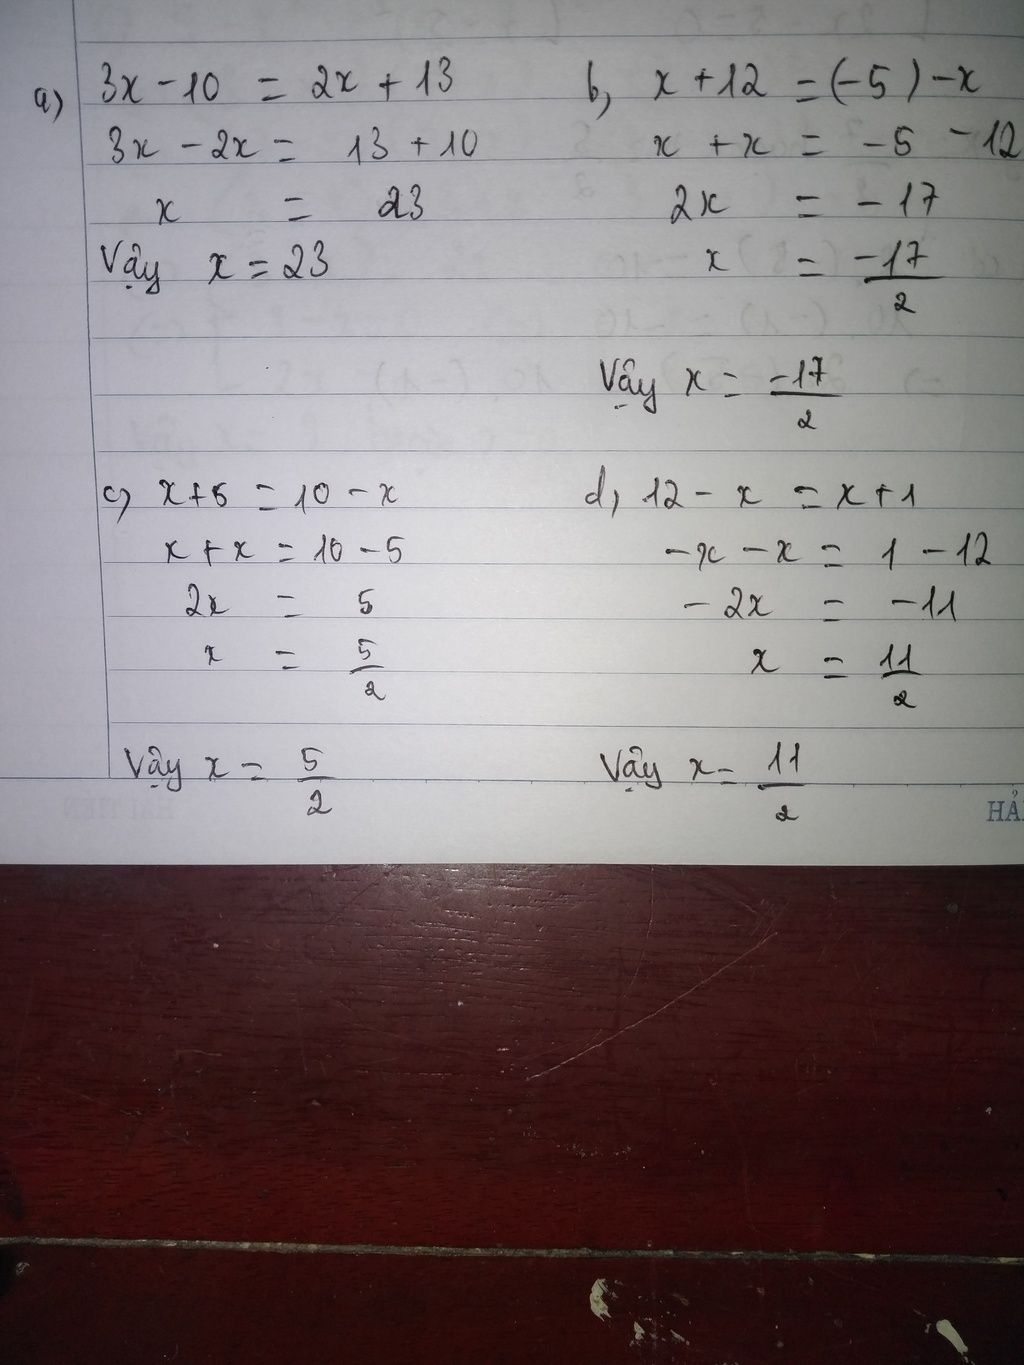 a) 3x - 10 = 2x + 13
3x - 2x = 13 + 10
x = 23
Vậy x = 23
b, x + 12 = (-5) - x
x + x = -5 - 12
2x = -17
x = -17/2
Vậy x = -17/2
c, x + 5 = 10 - x
x + x = 10 - 5
2x = 5
x = 5/2
Vậy x = 5/2
d, 12 - x = x + 1
-x - x = 1 - 12
-2x = -11
x = 11/2
Vậy x = 11/2